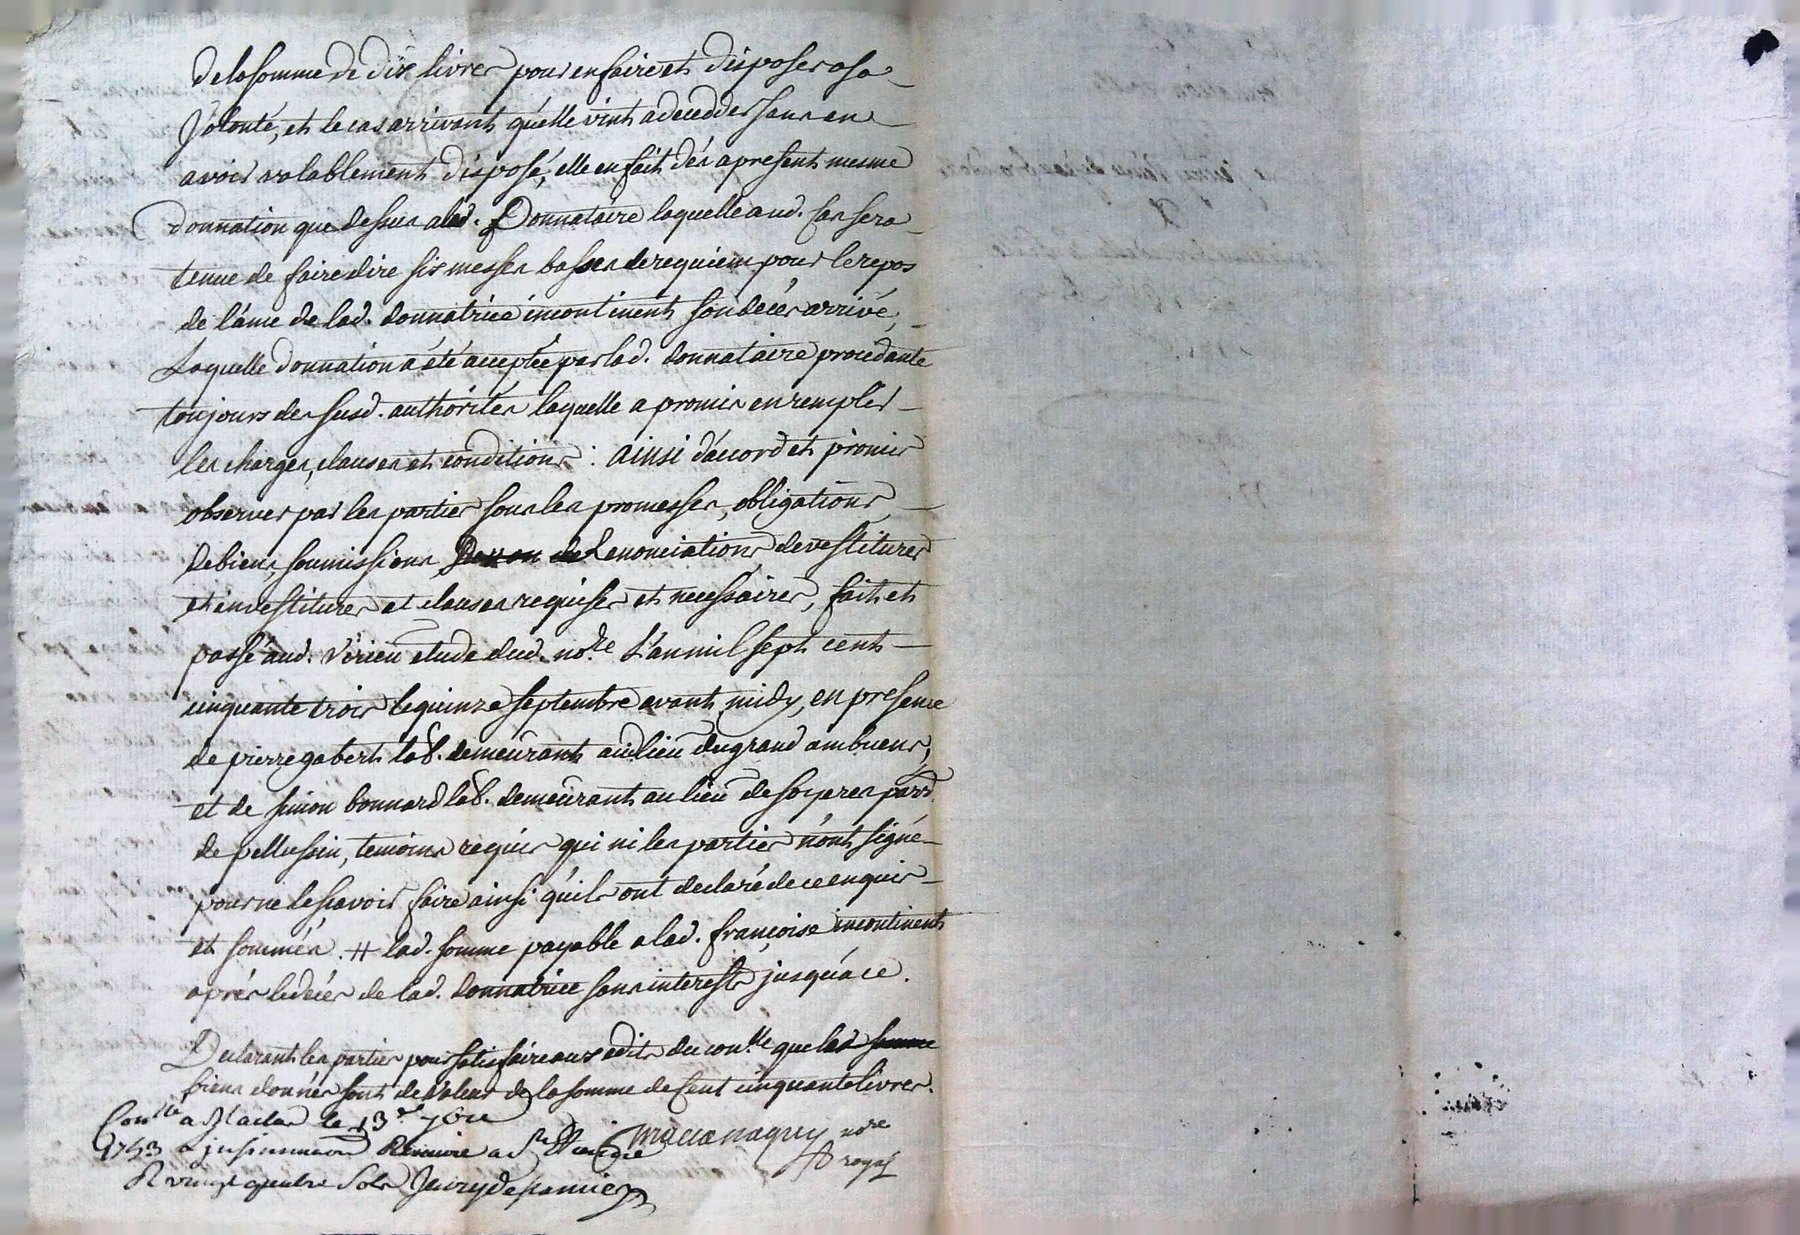 de la somme de dix livres pour en faire et disposer a sa
volonté, et le cas arrivant qu'elle vint a decedder sans en
avoir valablement disposé, elle en fait dés apresent mesme
donnation que dessus a lad. Donnataire laquelle aud. cas sera
tenue de faire dire six messes basses de requiem pour le repos
de l'ame de lad. donnatrice incontinent son decés arrivé,
Laquelle donnation a été acceptée par lad. donnataire procedante
toujours des susd. authorités laquelle a promis en remplir
les charges, clauses et conditions : ainsi d'accord et promis
observer par les parties sous les promesses, obligations
de biens, soumissions, renonciations, devestitures
et investitures et clauses requises et necessaires, fait et
passé aud. virieu etude dud. no.re L'an mil sept cent
cinquante trois le quinze septembre avant midy, en presence
de pierre gabert lab. demeurant au lieu du grand ambuens,
et de simon bonnard lab. demeurant au lieu de soyeres parr.
de pellussin, temoins requis qui ni les parties n'ont signé
pour ne le scavoir faire ainsi qu'ils ont declaré de ce enquis
et sommés. # lad. somme payable a lad. françoise incontinent
aprés le decés de lad. donnatrice sans interest jusqu'a ce.
Declarant les parties pour satisfaire aux edits du con.lle que les
biens donnés sont de valeur de la somme de Cent cinquante livres.
Con.lé a le 13.e 7bre
1753 a St
R vingt quatre sols
no.re
royal